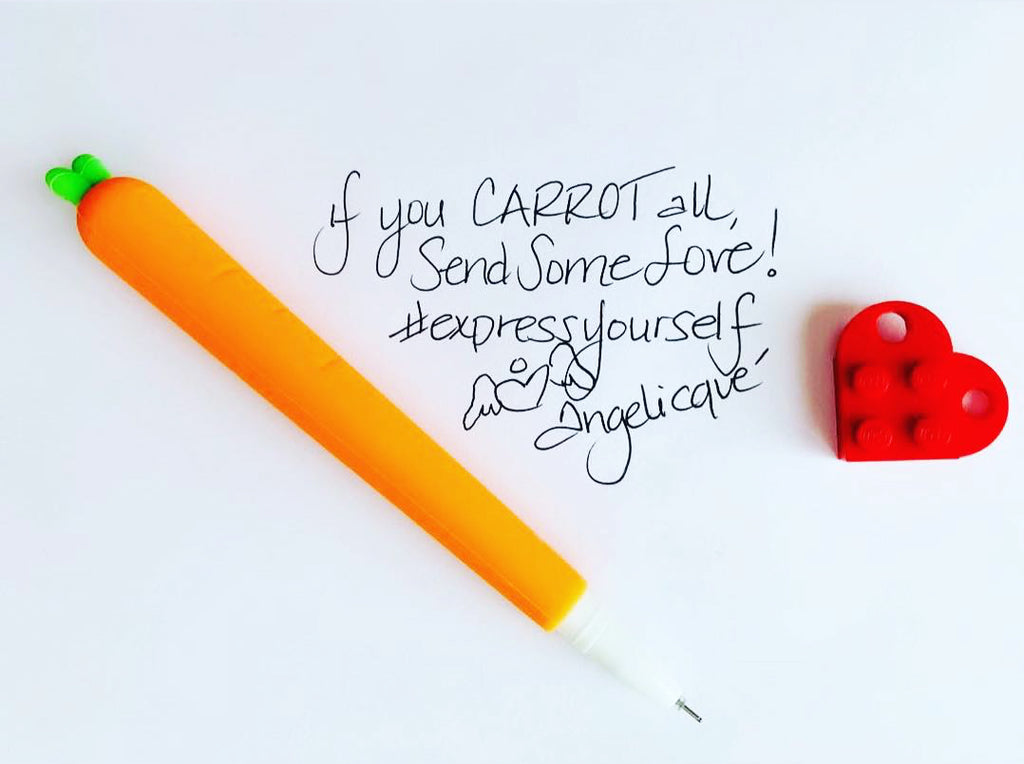 if you CARROT all,
Send Some Love!
#expressyourself
Angelicqué